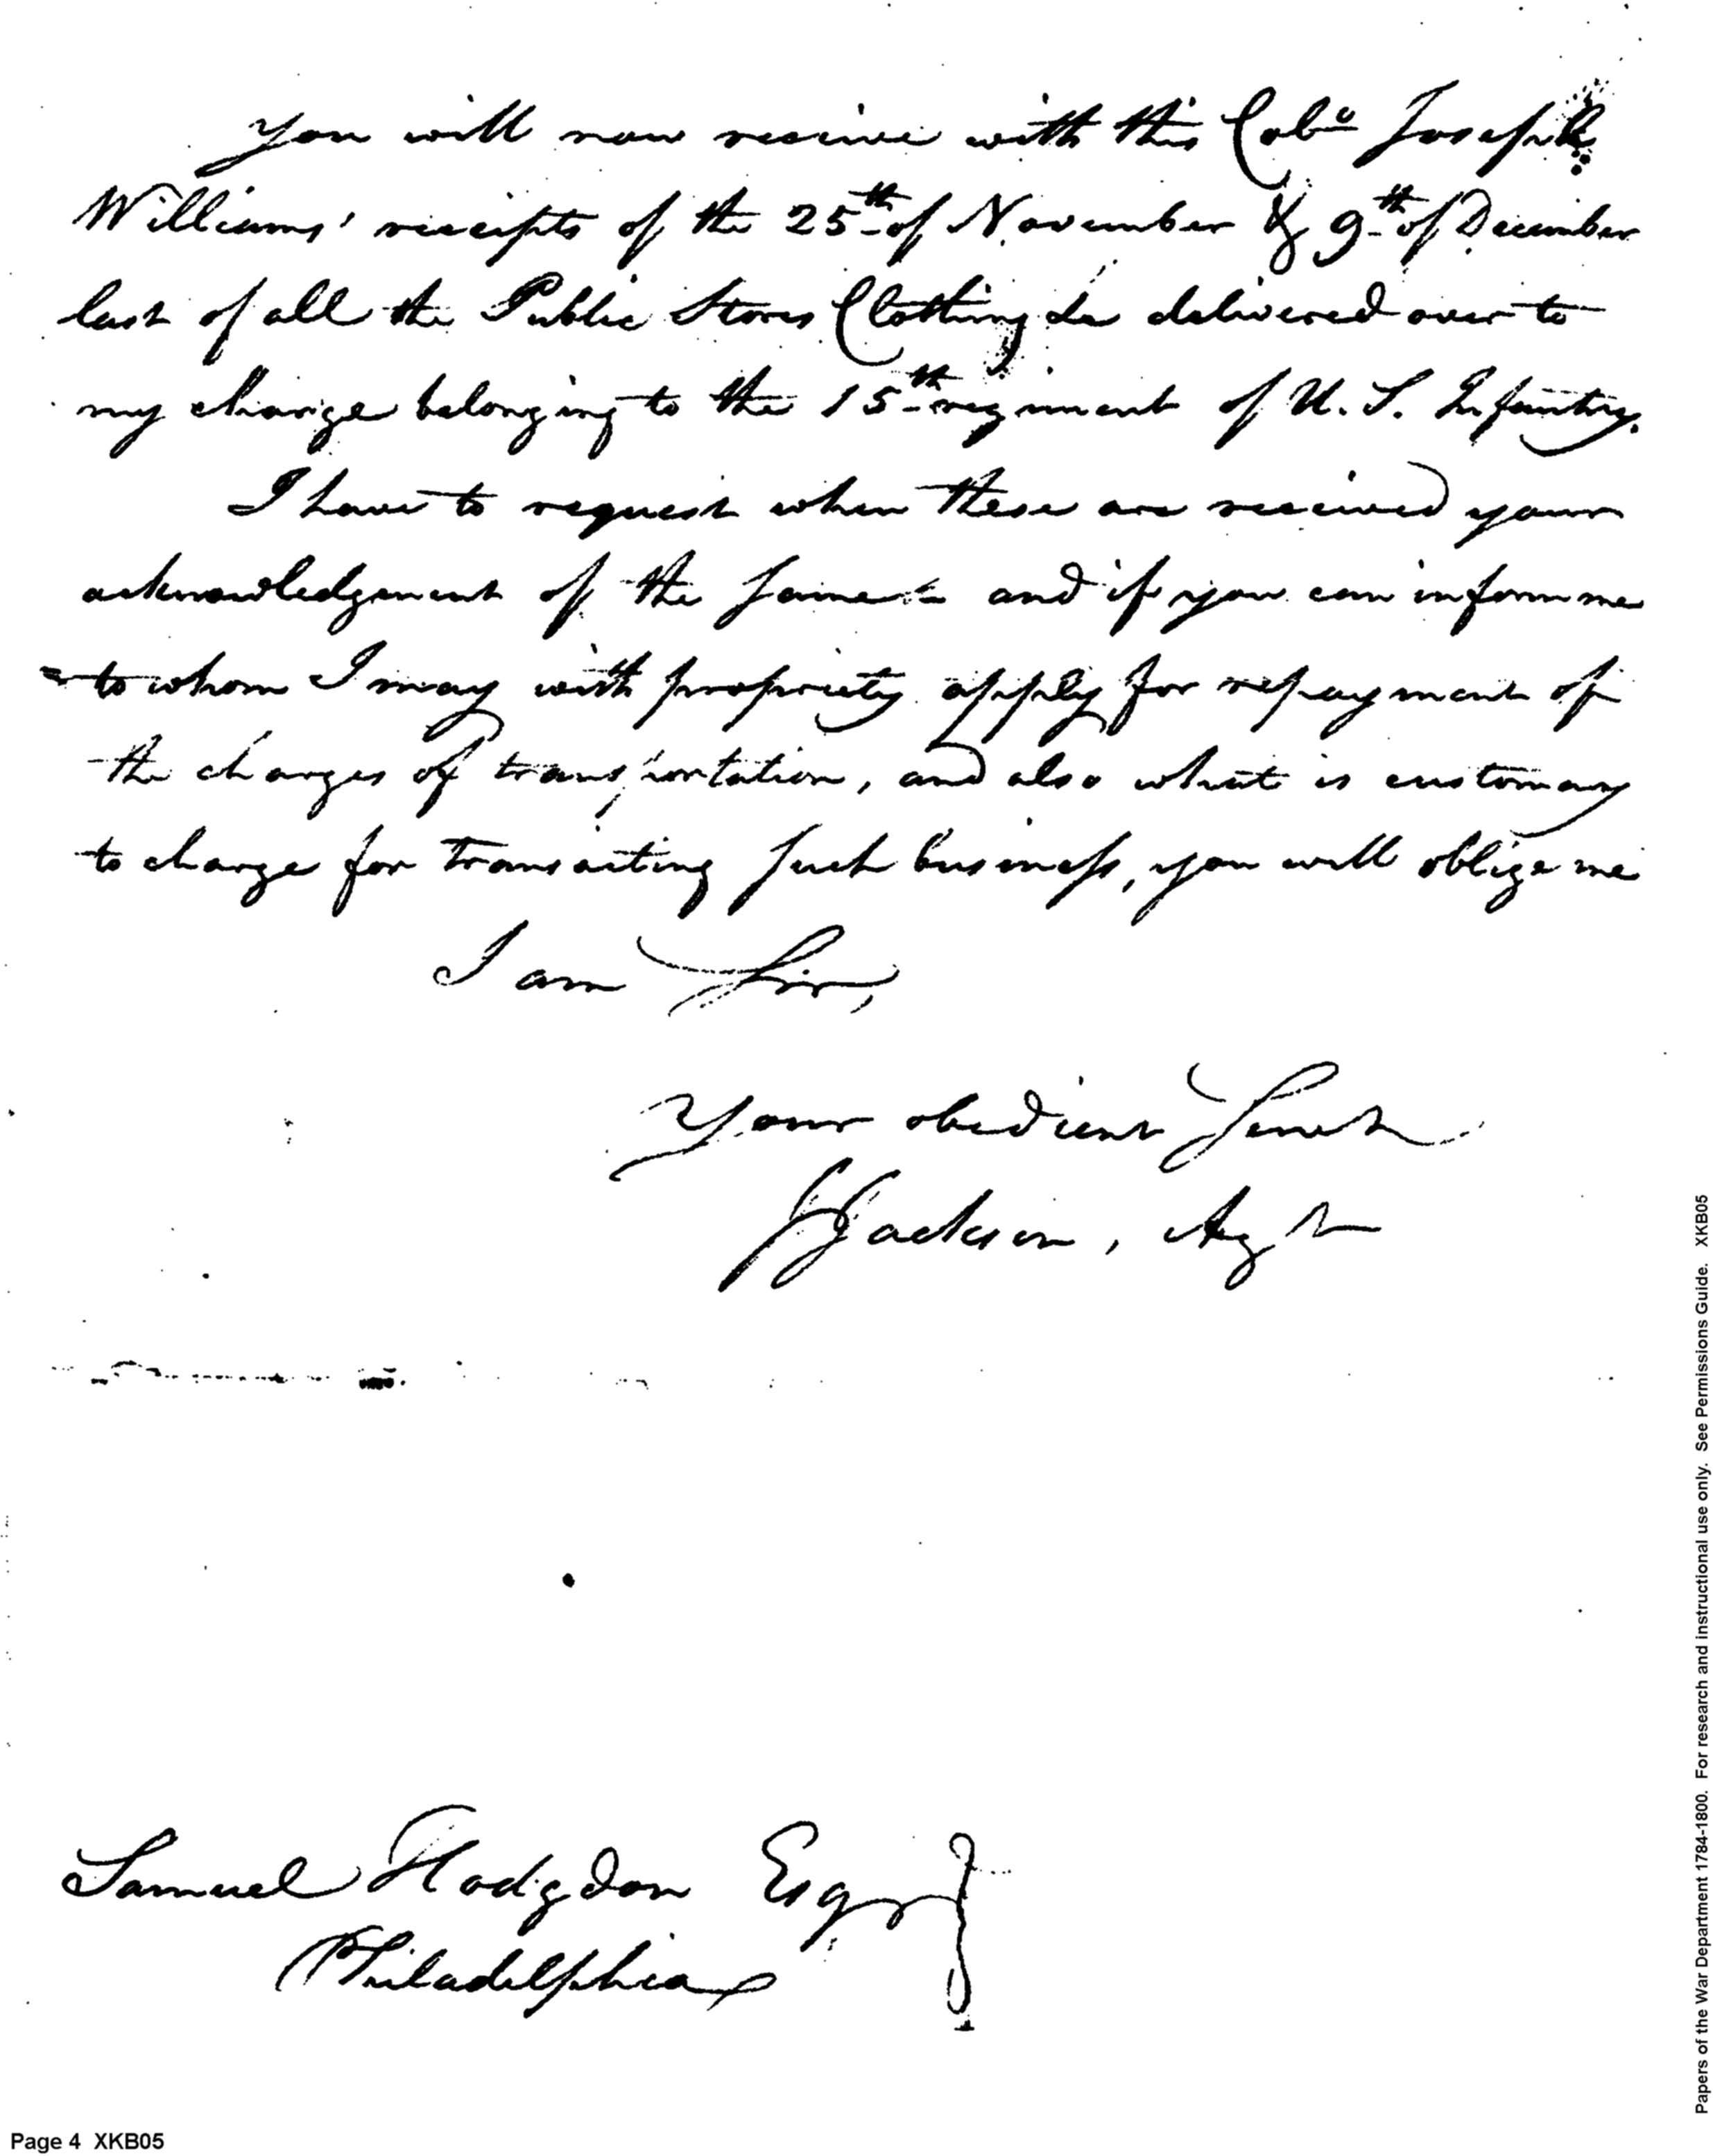 You will now receive with this Colo. Joseph
Williams' receipts of the 25th of November & 9th of December
last of all the Public Stores Clothing &c delivered over to
my charge belonging to the 15th regiment of U. S. Infantry.
I have to request when these are received your
acknowledgement of the same = and if you can inform me
= to whom I may with propriety apply for repayment of
the charges of transportation, and also what is customary
to charge for transacting such business, you will oblige me
I am Sir,
Your obedient Servt
Jackson, Agt
Samuel Hodgdon Esqr
Philadelphia
Page 4 XKB05
Papers of the War Department 1784-1800. For research and instructional use only. See Permissions Guide. XKB05